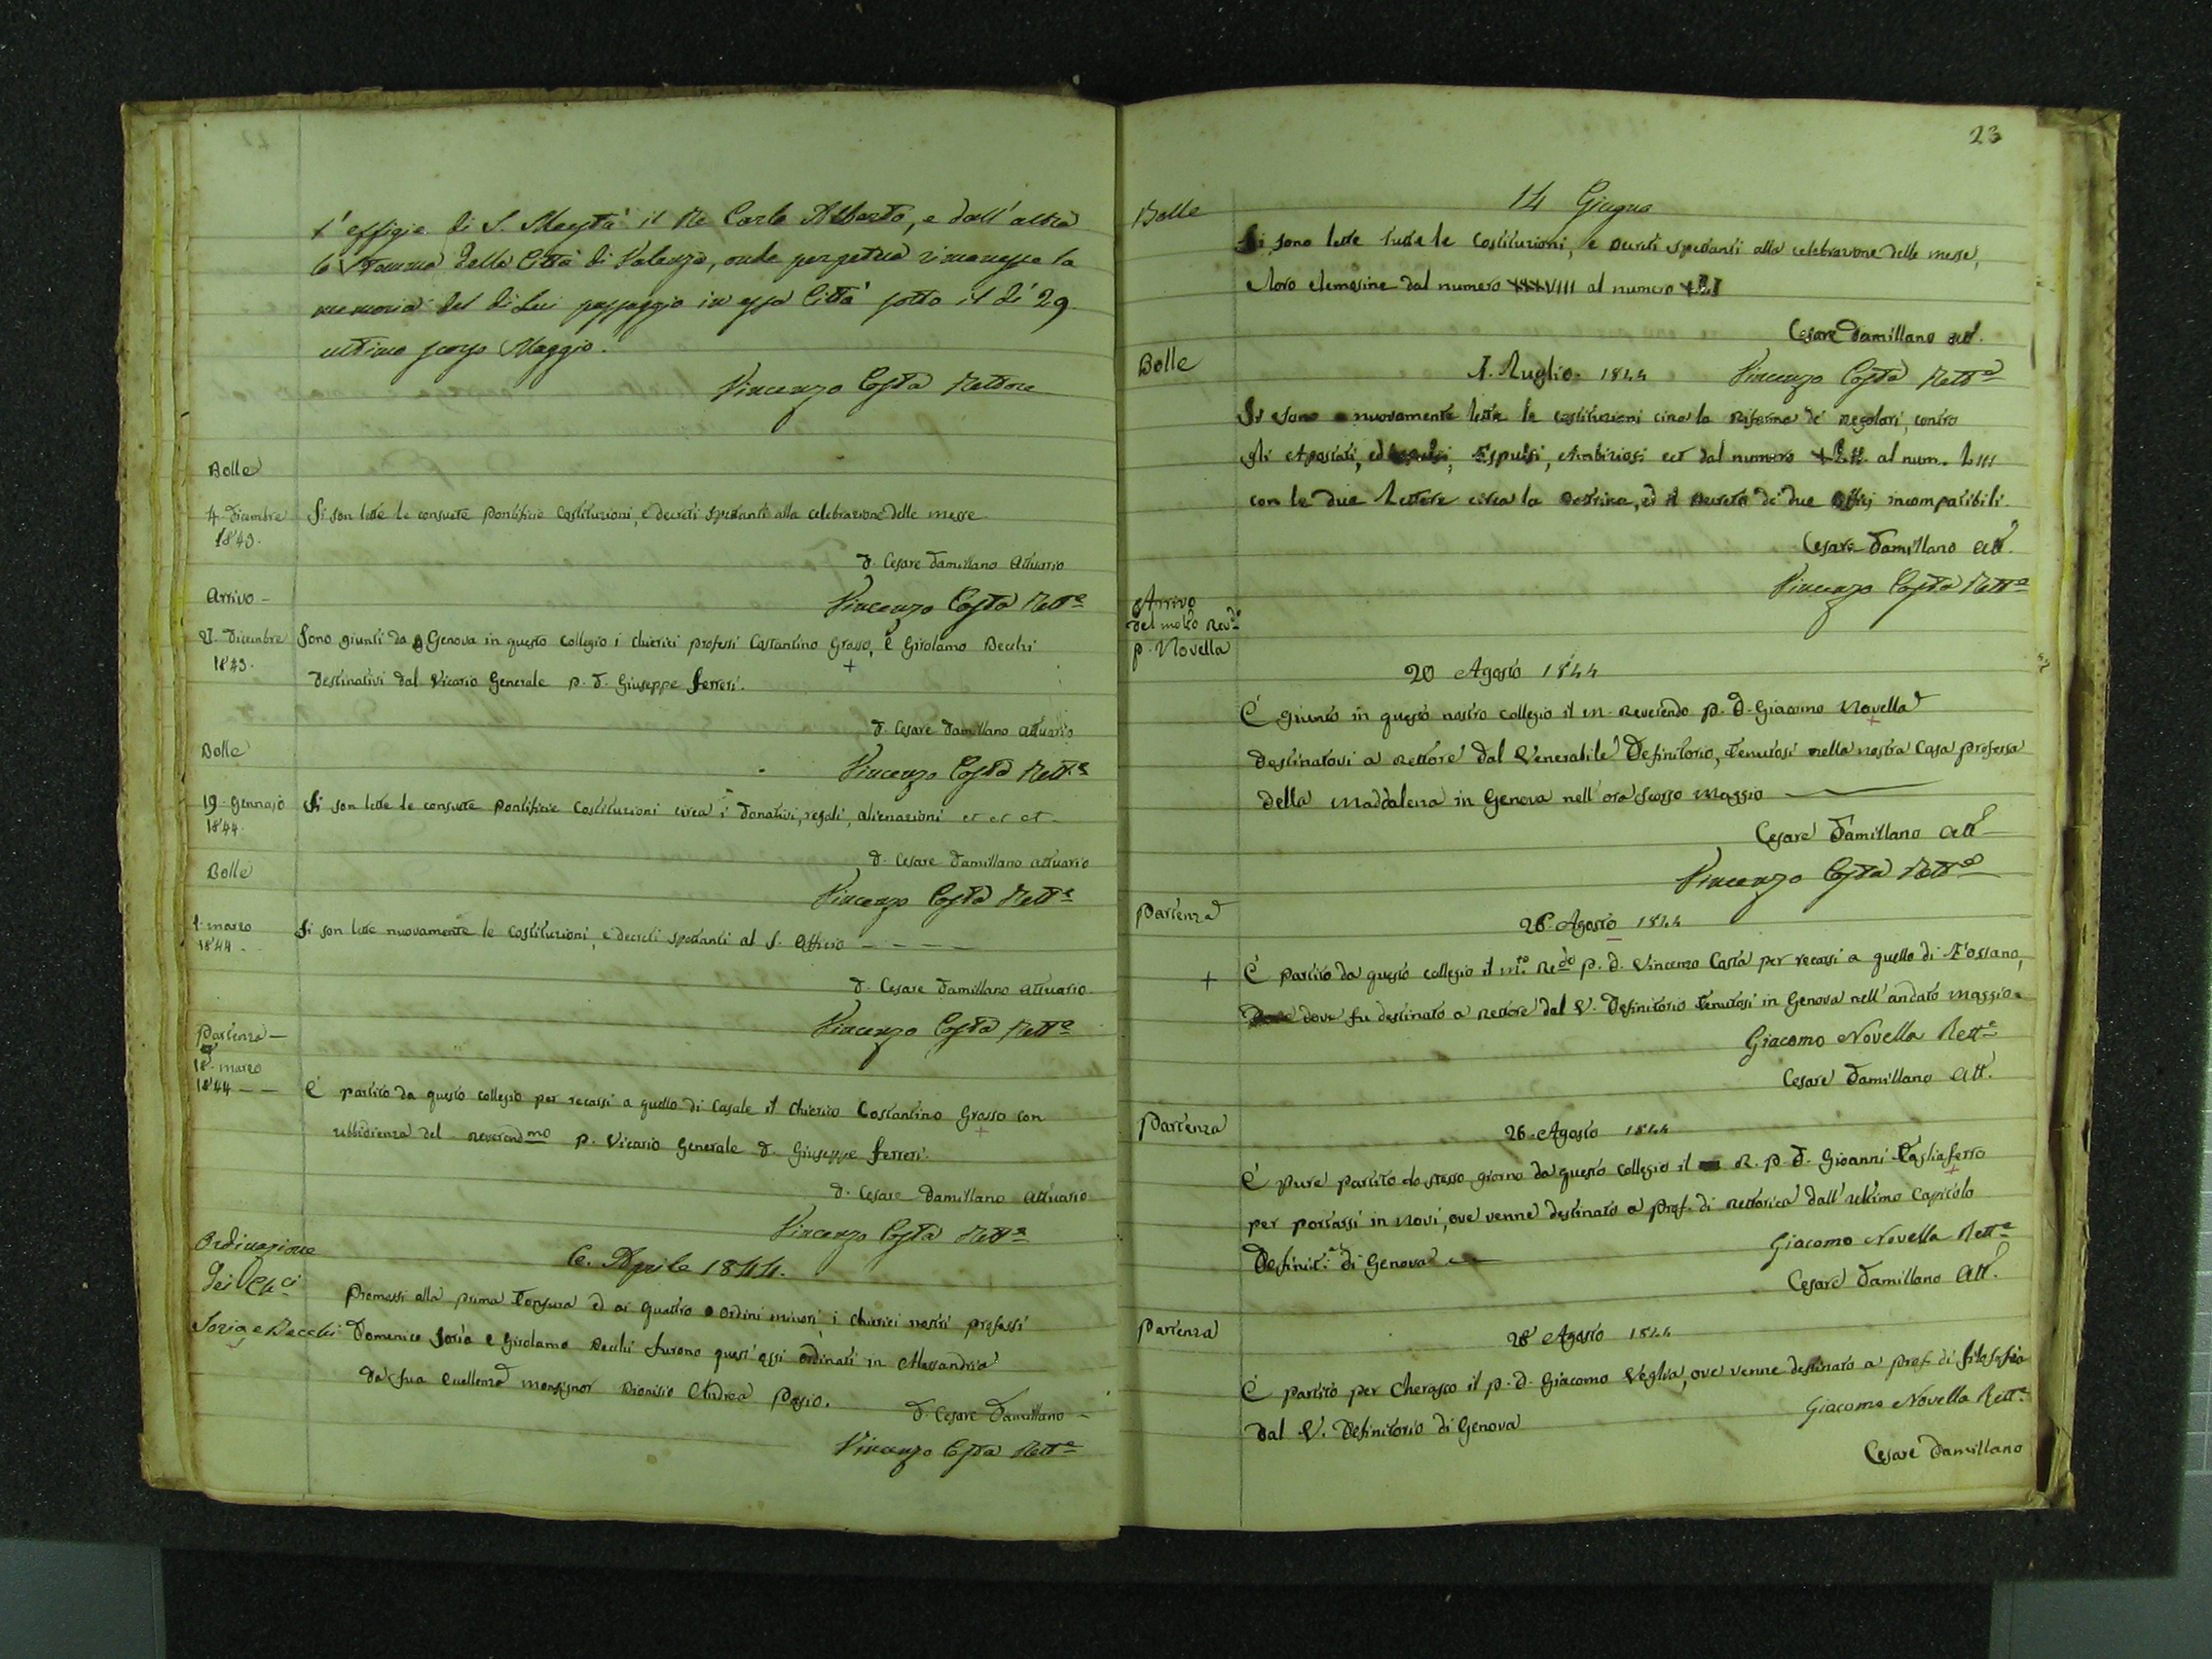 l'effigie di S. Maestà il Re Carlo Alberto, e dall'altra
lo Stemma della Città di Valenza, onde perpetua rimanesse la
memoria del di Lui passaggio in essa Città sotto il dì 29
ultimo scorso Maggio.
Vincenzo Costa Rettore
Bolle
4. Dicembre 1843.
Si son lette le consuete Pontificie Costituzioni, e decreti spettanti alla celebrazione delle messe
D. Cesare Damillano Attuario
Vincenzo Costa Rett.e
Arrivo -
21. Dicembre 1843.
Sono giunti da Genova in questo collegio i chierici professi Costantino Grosso, e Girolamo Becchi
+
destinativi dal Vicario Generale P. D. Giuseppe Ferreri.
D. Cesare Damillano Attuario
Vincenzo Costa Rett.e
Bolle
19. Gennajo 1844.
Si son lette le consuete Pontificie Costituzioni circa i donativi, regali, alienazioni et et et -
D. Cesare Damillano attuario
Vincenzo Costa Rett.e
Bolle
1. marzo 1844.
Si son lette nuovamente le Costituzioni, e decreti spettanti al S. Officio - - - -
D. Cesare Damillano Attuario.
Vincenzo Costa Rett.e
Partenza -
18. marzo
1844 - -
È partito da questo collegio per recarsi a quello di Casale il chierico Costantino Grosso con
+
ubbidienza del Reverend.mo P. Vicario Generale D. Giuseppe Ferreri.
D. Cesare Damillano Attuario
Vincenzo Costa Rett.e
Ordinazione
dei Ch.ci
Soria e Becchi
6. Aprile 1844.
Promessi alla prima Tonsura ed ai quattro ordini minori i chierici nostri professi
Domenico Soria e Girolamo Becchi furono quest'oggi ordinati in Alessandria
da Sua Eccellenza monsignor Dionisio Andrea Pasio.
D. Cesare Damillano -
Vincenzo Costa Rett.e
23
Bolle
14 Giugno
Si sono lette tutte le Costituzioni, e Decreti spettanti alla celebrazione delle messe,
e loro elemosine dal numero XXXVIII al numero XLI
Cesare Damillano att.
Bolle
1. Luglio. 1844
Vincenzo Costa Rett.e
Si sono nuovamente lette le costituzioni circa la Riforma de' Regolari, contro
gli Apostati, ed Espulsi, Ambiziosi ect dal numero XLII. al num. LIII
con le due Lettere circa la Dottrina, ed il Decreto de' due Offizj incompatibili.
Cesare Damillano Att.
Vincenzo Costa Rett.e
Arrivo
del molto Rev.do
P. Novella
20 Agosto 1844
È giunto in questo nostro collegio il M. Reverendo P. D. Giacomo Novella
+
destinatovi a Rettore dal Venerabile Definitorio, tenutosi nella nostra Casa professa
della Maddalena in Genova nell'ora scorso Maggio
Cesare Damillano Att.
Vincenzo Costa Rett.e
Partenza
26. Agosto 1844
+
È partito da questo collegio il M.to Re.do P. D. Vincenzo Costa per recarsi a quello di Fossano,
dove fu destinato a Rettore dal V. Definitorio tenutosi in Genova nell'andato Maggio.
Giacomo Novella Rett.e
Cesare Damillano Att.
Partenza
26. Agosto 1844
È pure partito lo stesso giorno da questo collegio il R. P. D. Gioanni Tagliaferro
+
per portarsi in Novi, ove venne destinato a Prof. di Rettorica dall'ultimo Capitolo
Definit. di Genova
Giacomo Novella Rett.e
Cesare Damillano Att.
Partenza
28 Agosto 1844
È partito per Cherasco il P. D. Giacomo Veglia, ove venne destinato a Prof. di Filosofia
dal V. Definitorio di Genova
Giacomo Novella Rett.e
Cesare Damillano